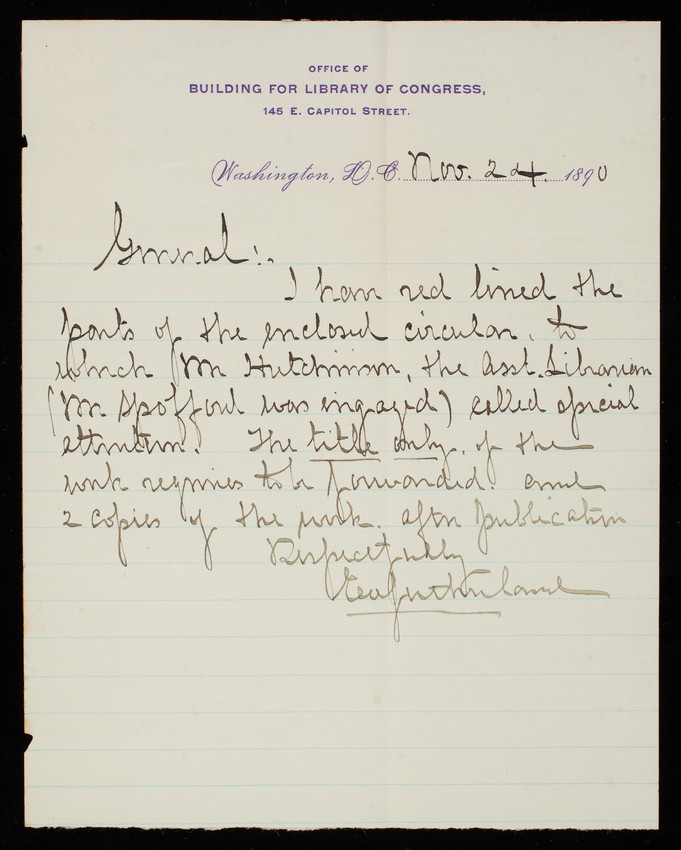 OFFICE OF
BUILDING FOR LIBRARY OF CONGRESS,
145 E. CAPITOL STREET.
Washington, D.C. Nov. 24. 1890
General:.
I have red lined the
parts of the enclosed circular, to
which Mr Hutchinson, the Asst. Librarian
(Mr Spofford was engaged) called special
attention. The title only, of the
work requires to be forwarded. and
2 copies of the work. after publication
Respectfully
Sutherland